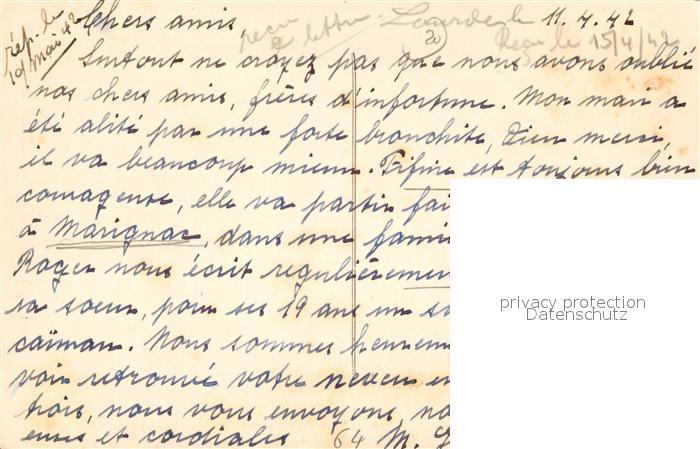 rép. le
10/Mai 42
Chers amis,
Lourdes le 11.4.42
reçu
lettre
20
Reçu le 15/4/42
Surtout ne croyez pas que nous avons oublié
nos chers amis, frères d'infortune. Mon mari a
été alité par une forte bronchite, Dieu merci,
il va beaucoup mieux. Fifine est toujours bien
courageuse, elle va partir fai
à Marignac, dans une fami
Roger nous écrit regulièremen
sa soeur, pour ses 19 ans un s
caïman. Nous sommes heureu
voir retrouvé votre neveu e
trois, nous vous envoyons, no
euses et cordiales
64 M.
privacy protection
Datenschutz